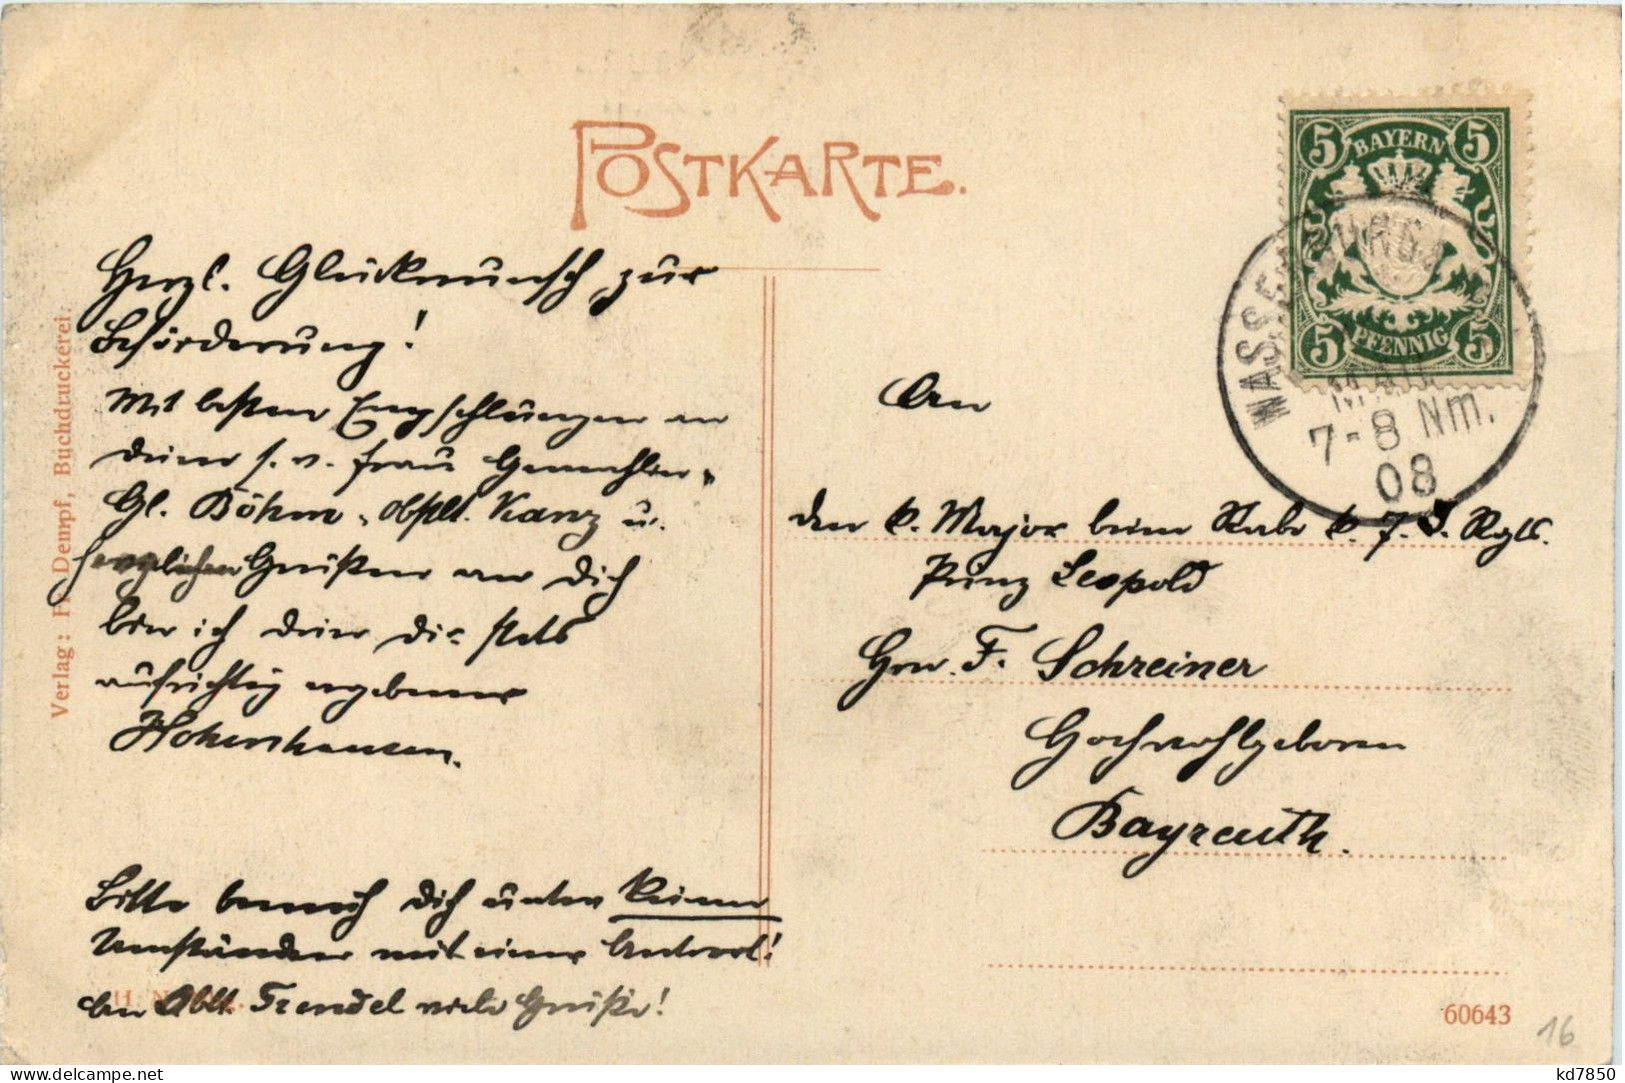 POSTKARTE.
Herzl. Glückwunsch zur
Beförderung!
Mit besten Empfehlungen an
Deine s. v. Frau Gemahlin,
Gl. Böhm, Obstlt. Kanz u.
herzlichen Grüßen an Dich
bin ich Dein Dir stets
aufrichtig ergebener
Hohenhausen.
Bitte bemüh Dich unter keinen
Umständen mit einer Antwort!
An Oblt. Trendel viele Grüße!
Verlag: Fr. Dempf, Buchdruckerei.
BAYERN
5 5
5 5
PFENNIG
WASSERBURG
7-8 Nm.
08
An
den k. Major beim Stabe k. 7. I. Rgts.
Prinz Leopold
Hrn. F. Schreiner
Hochwohlgeboren
Bayreuth.
60643
16
kd7850